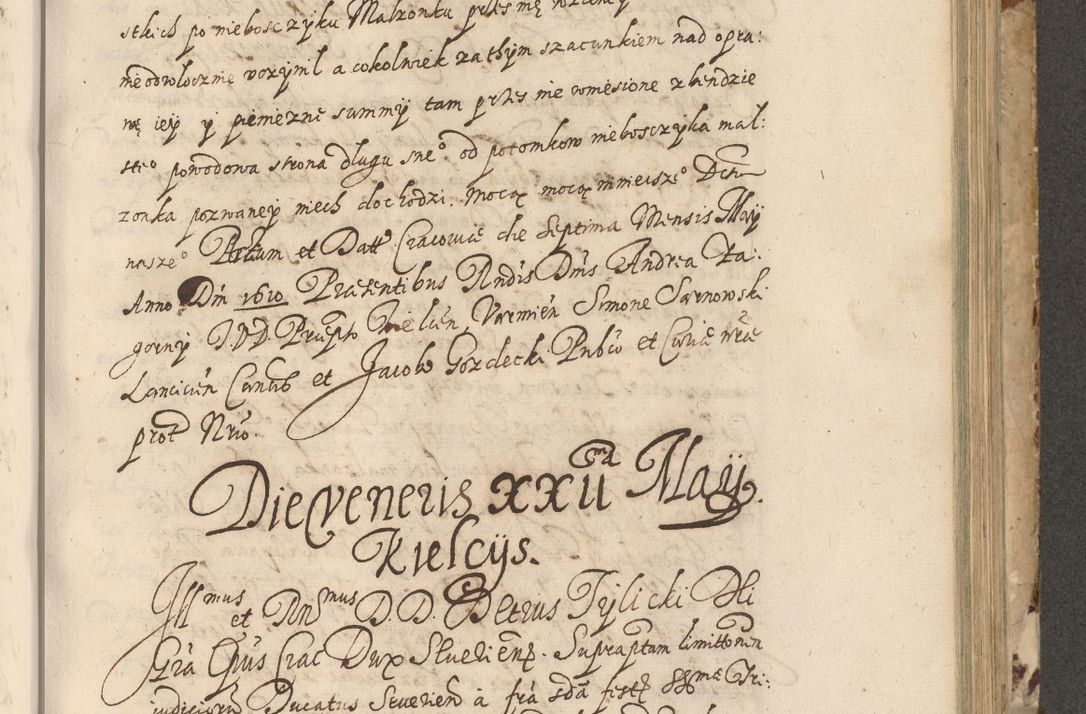 stkich po niebosczyku Malzonku przes nię
nieodwłocznie vczynił a cokolwiek za thym szacunkiem nad opra:
wę iey y pieniezne summy tam przes nie wniesione zbendzie
steo powodowa strona dlugu sneo od potomkow niebosczyka mal:
zonka pozwaney niech dochodzi. Mocą mocą mnieiszeo Dctu
naszeo Actum et Datt Cracoviæ die Septima Mensis Maij
Anno Dni 1610 Præsentibus Rndis Dnis Andrea
gorny I.V.D. Præpto Varmien Simone Sarnowski
Lancicien Cancis et Jacobo Gorzdecki Pubco et Curiæ nræ
 Nrio.
Die veneris XXIIma Maij.
Kielcijs.
Illmus et Rnmus D. D. Petrus Tylicki Dei
Gra Epus Crac Dux Severien. Suprascptam limittonem
iudiciorum Ducatus Severien a fra 2da festi SSmæ Tri: